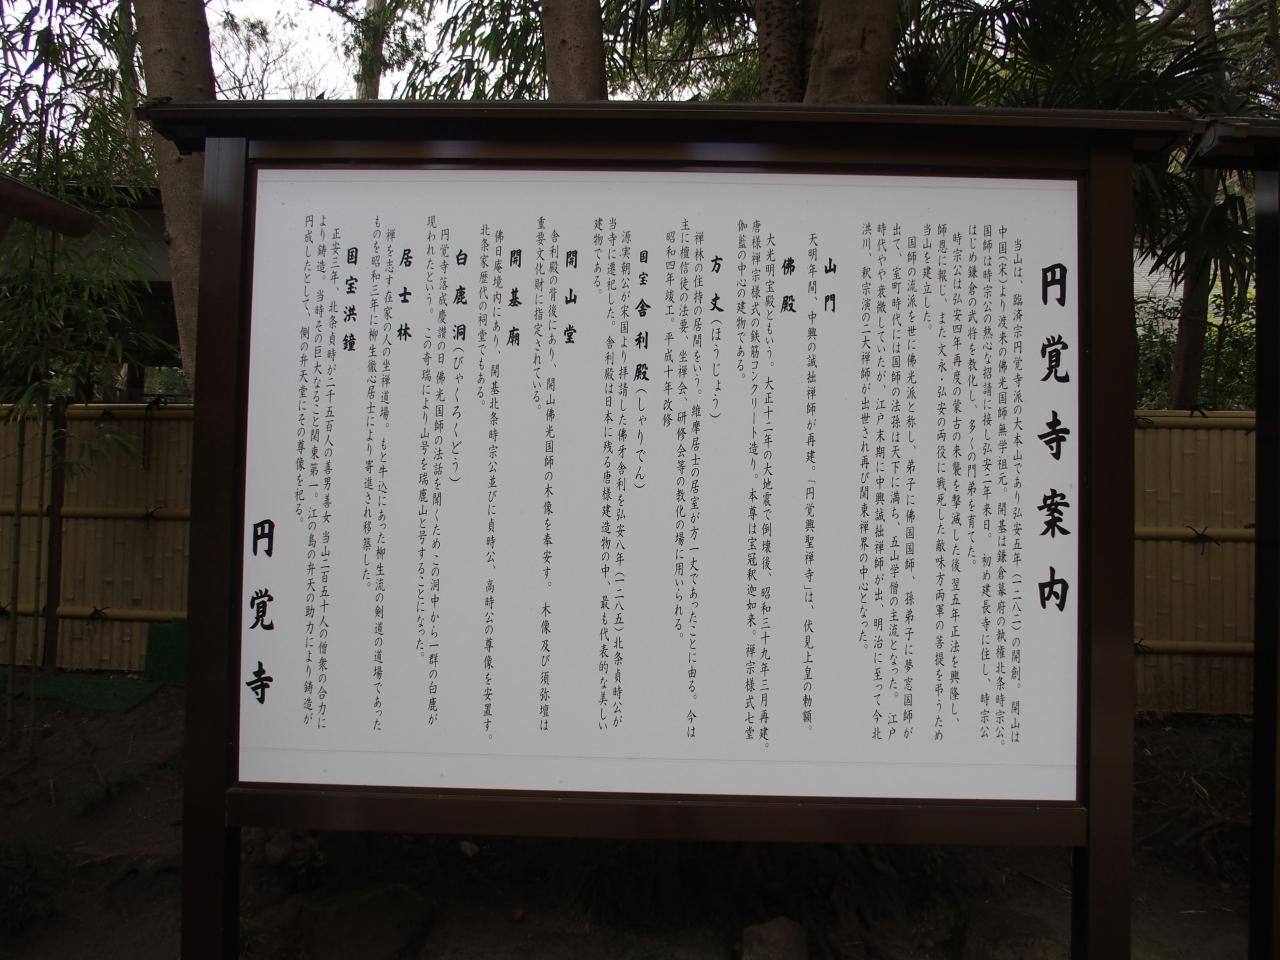 円覚寺案内
当山は、臨済宗円覚寺派の大本山であり弘安五年(一二八二)の開創。開山は
中国(宋)より渡来の佛光国師無学祖元。開基は鎌倉幕府の執権北条時宗公。
国師は時宗公の熱心な招請に接し弘安二年来日。初め建長寺に住し、時宗公
はじめ鎌倉の武将を教化し、多くの門弟を育てた。
時宗公は弘安四年再度の蒙古の来襲を撃滅した後、翌五年正法を興隆し、
師恩に報じ、また文永・弘安の両役に戦死した敵味方両軍の菩提を弔うため
当山を建立した。
国師の流派を世に佛光派と称し、弟子に佛国国師、孫弟子に夢窓国師が
出て、室町時代には国師の法孫は天下に満ち、五山学僧の主流となった。江戸
時代やや衰微していたが、江戸末期に中興誠拙禅師が出、明治に至って今北
洪川、釈宗演の二大禅師が出世され再び関東禅界の中心となった。
山門
天明年間、中興の誠拙禅師が再建。「円覚興聖禅寺」は、伏見上皇の勅額。
佛殿
大光明宝殿ともいう。大正十二年の大地震で倒壊後、昭和三十九年三月再建。
唐様禅宗様式の鉄筋コンクリート造り。本尊は宝冠釈迦如来。禅宗様式七堂
伽藍の中心の建物である。
方丈(ほうじょう)
禅林の住持の居間をいう。維摩居士の居室が方一丈であったことに由る。今は
主に檀信徒の法要、坐禅会、研修会等の教化の場に用いられる。
昭和四年竣工。平成十年改修
国宝舎利殿(しゃりでん)
源実朝公が宋国より拝請した佛牙舎利を弘安八年(一二八五)北条貞時公が
当寺に遷祀した。舎利殿は日本に残る唐様建造物の中、最も代表的な美しい
建物である。
開山堂
舎利殿の背後にあり、開山佛光国師の木像を奉安す。木像及び須弥壇は
重要文化財に指定されている。
開基廟
佛日庵境内にあり、開基北条時宗公並びに貞時公、高時公の尊像を安置す。
北条家歴代の祠堂でもある。
白鹿洞(びゃくろくどう)
円覚寺落成慶讃の日佛光国師の法話を聞くため、この洞中から一群の白鹿が
現われたという。この奇瑞により山号を瑞鹿山と号することになった。
居士林
禅を志す在家の人の坐禅道場。もと牛込にあった柳生流の剣道の道場であった
ものを昭和三年に柳生徹心居士により寄進され移築した。
国宝洪鐘
正安三年、北条貞時が二千五百人の善男善女 当山二百五十人の僧衆の合力に
より鋳造。当時その巨大なること関東第一。江の島の弁天の助力により鋳造が
円成したとして、側の弁天堂にその尊像を祀る。
円覚寺